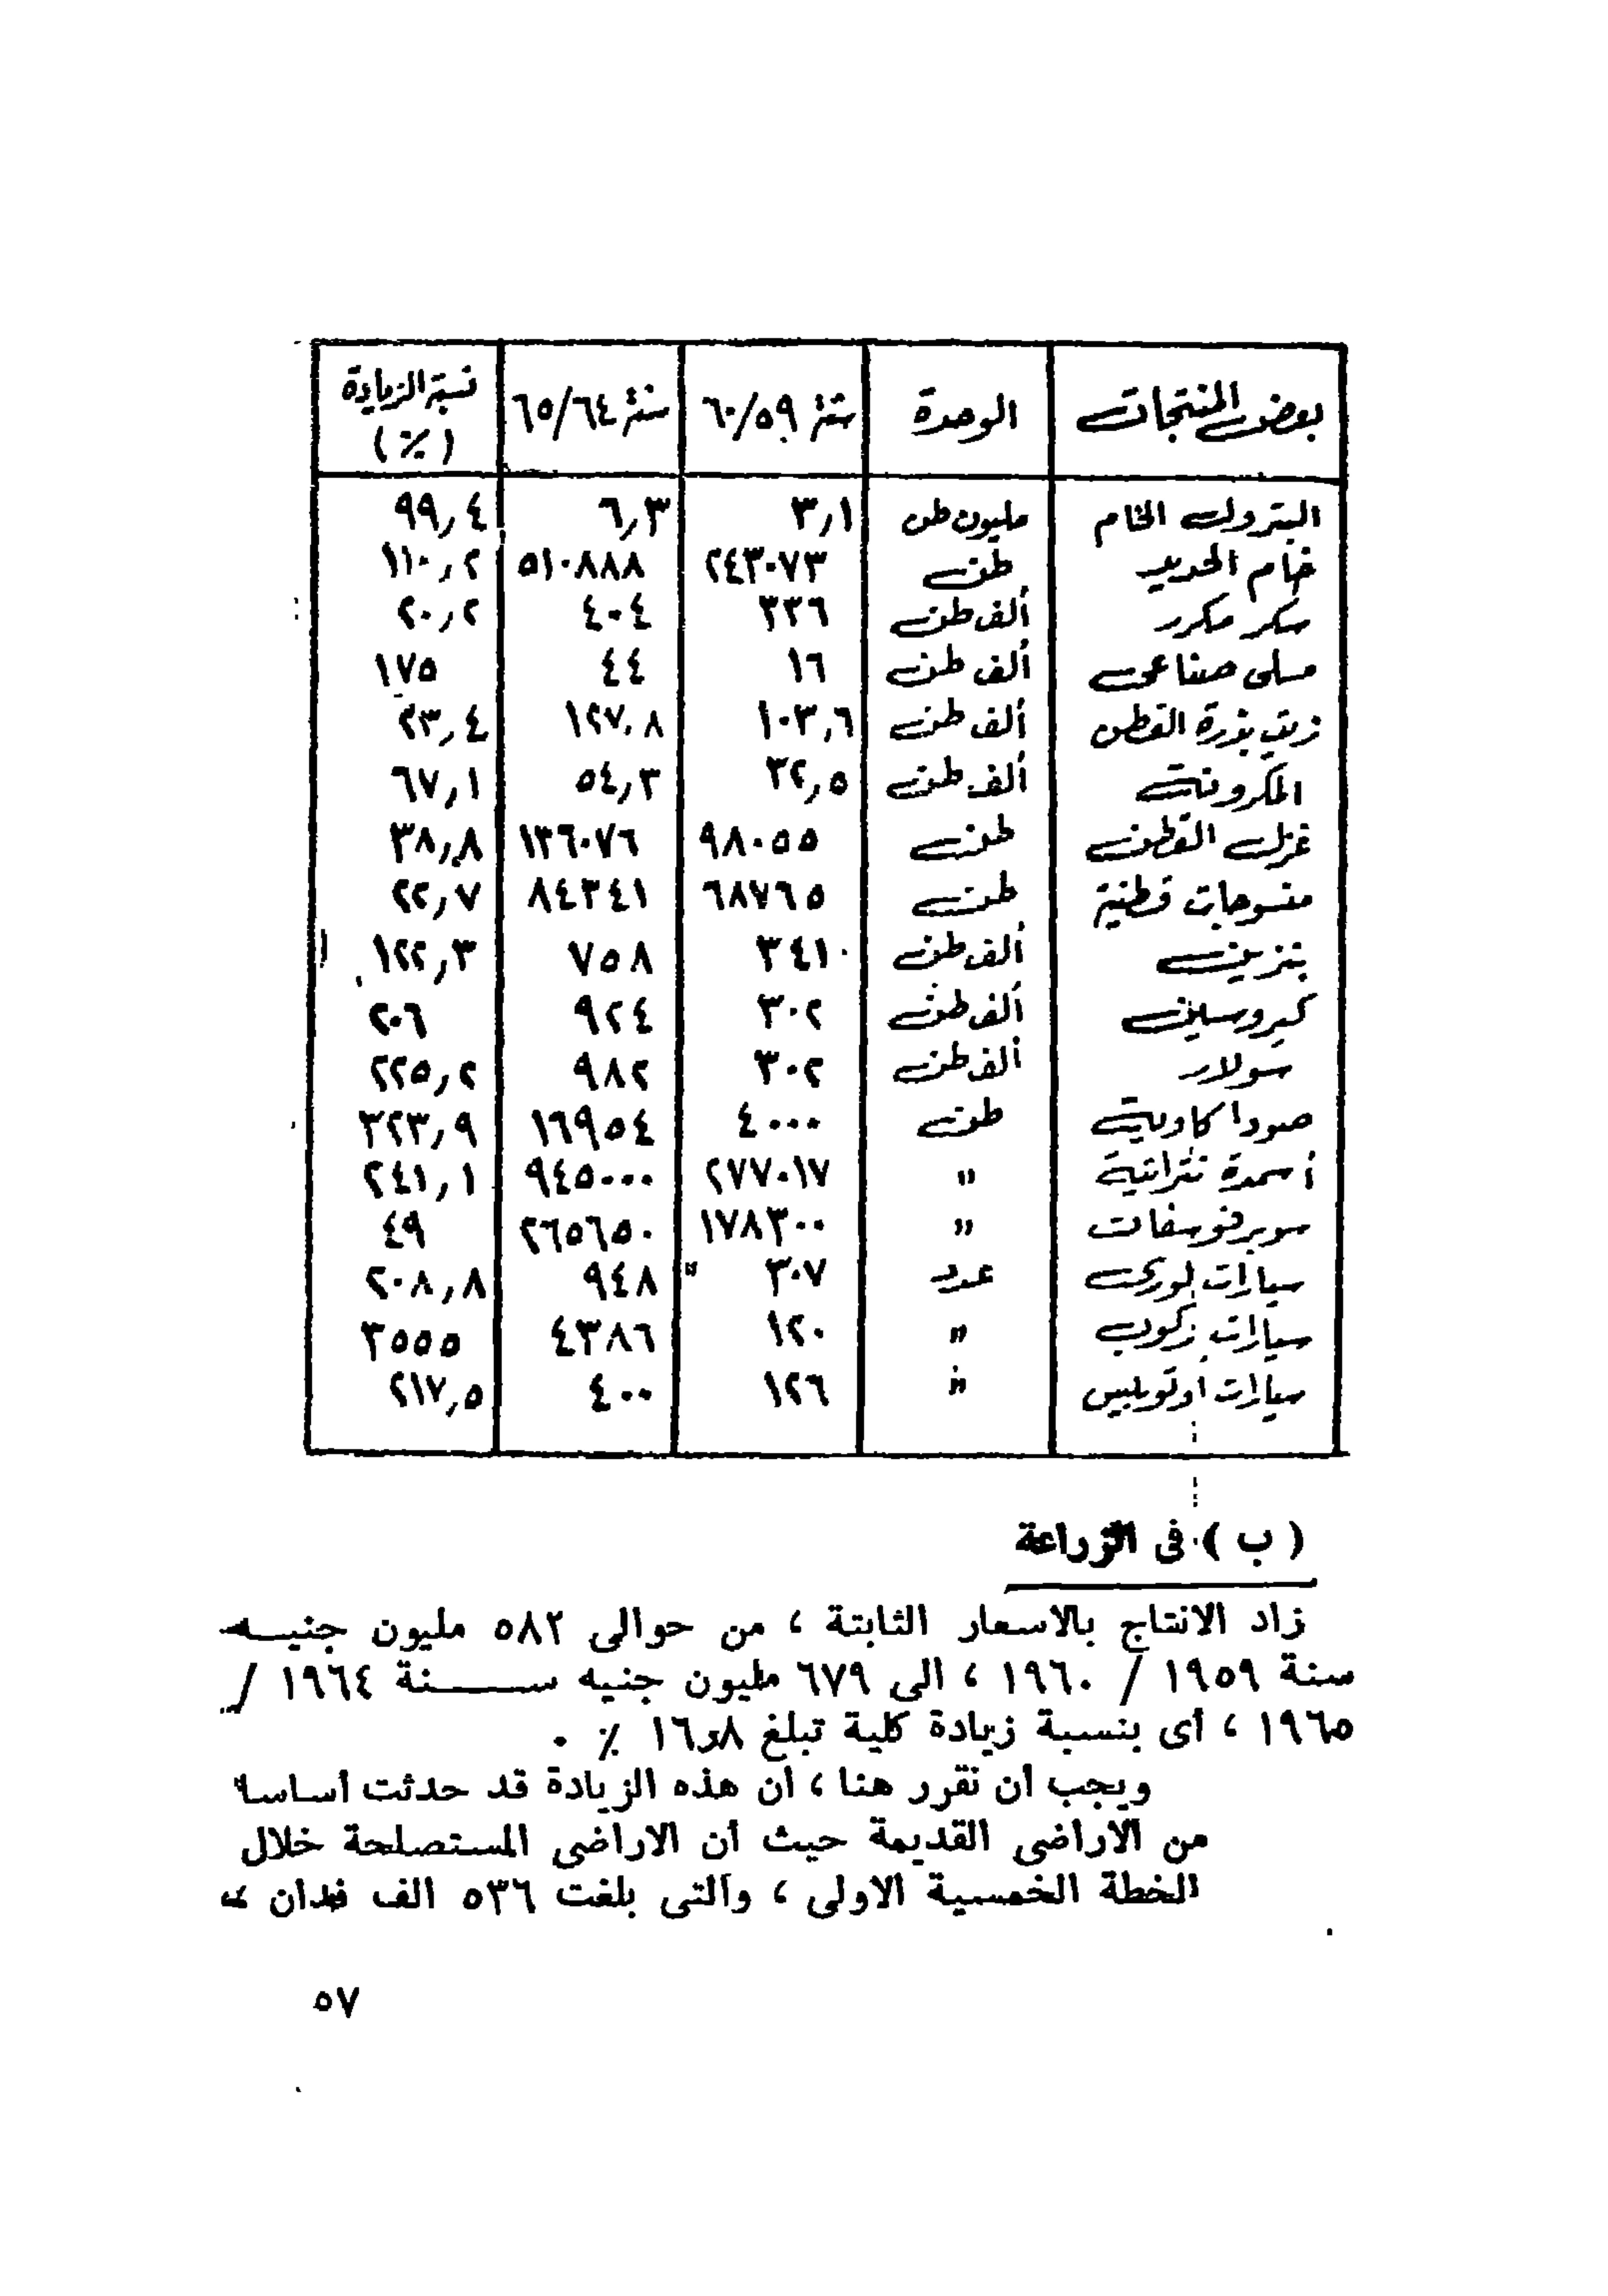 بعض المنتجات الوحدة سنة ٦٠/٥٩ سنة ٦٥/٦٤ نسبة الزيادة (٪)
البترول الخام مليون طن ٣٫١ ٦٫٣ ٩٩٫٤
خام الحديد طن ٢٤٣٠٧٣ ٥١٠٨٨٨ ١١٠٫٢
سكر مكرر ألف طن ٣٣٦ ٤٠٤ ٢٠٫٢
مسلى صناعى ألف طن ١٦ ٤٤ ١٧٥
زيت بذرة القطن ألف طن ١٠٣٫٦ ١٢٧٫٨ ٢٣٫٤
المكرونة ألف طن ٣٢٫٥ ٥٤٫٣ ٦٧٫١
غزل القطن طن ٩٨٠٥٥ ١٣٦٠٧٦ ٣٨٫٨
منسوجات قطنية طن ٦٨٧٦٥ ٨٤٣٤١ ٢٢٫٧
بنزين ألف طن ٣٤١ ٧٥٨ ١٢٢٫٣
كيروسين ألف طن ٣٠٢ ٩٢٤ ٢٠٦
سولار ألف طن ٣٠٢ ٩٨٢ ٢٢٥٫٢
صودا كاوية طن ٤٠٠٠ ١٦٩٥٤ ٣٢٣٫٩
أسمدة نتراتية " ٢٧٧٠١٧ ٩٤٥٠٠٠ ٢٤١٫١
سوبرفوسفات " ١٧٨٣٠٠ ٢٦٥٦٥٠ ٤٩
سيارات لورى عدد ٣٠٧ ٩٤٨ ٢٠٨٫٨
سيارات ركوب " ١٢٠ ٤٣٨٦ ٣٥٥٥
سيارات اوتوبيس " ١٢٦ ٤٠٠ ٢١٧٫٥
( ب ) فى الزراعة
زاد الانتاج بالاسعار الثابتة ، من حوالى ٥٨٢ مليون جنيـه
سنة ١٩٥٩ / ١٩٦٠ ، الى ٦٧٩ مليون جنيه ســـنة ١٩٦٤ /
١٩٦٥ ، أى بنسبة زيادة كلية تبلغ ١٦٫٨ ٪ .
ويجب أن نقرر هنا ، أن هذه الزيادة قد حدثت أساسا
من الاراضى القديمة حيث أن الاراضى المستصلحة خلال
الخطة الخمسية الاولى ، والتى بلغت ٥٣٦ الف فدان ،
٥٧